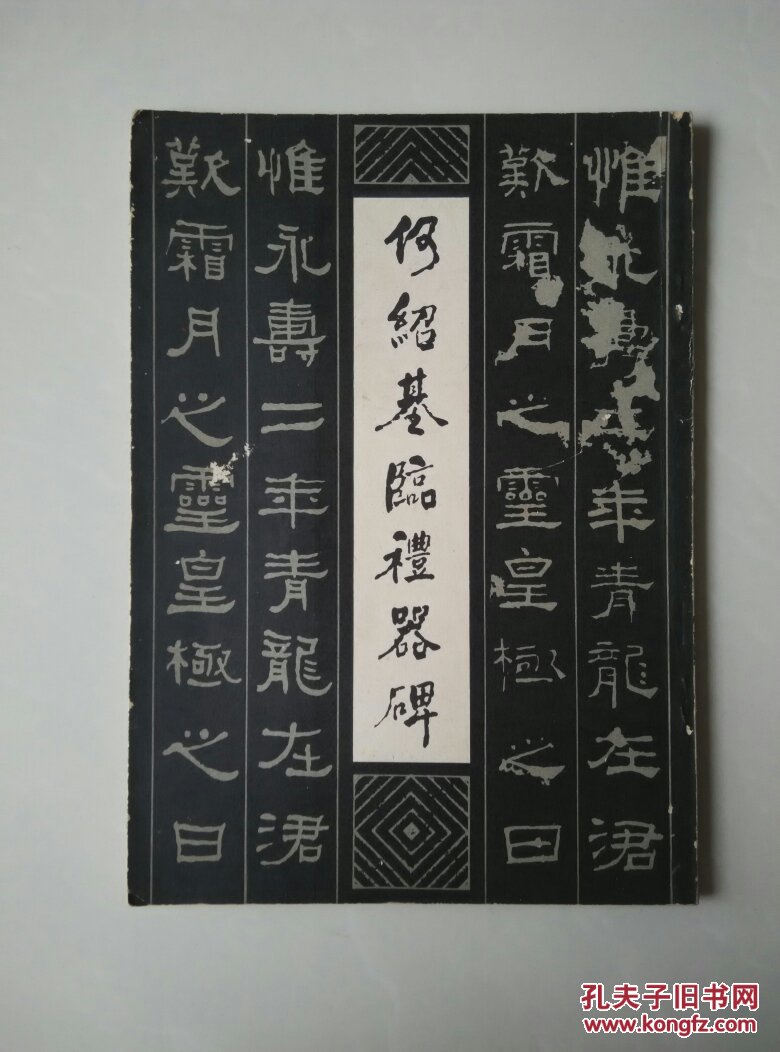 惟永壽二年青龍在涒
歎霜月之靈皇極之日
何紹基臨禮器碑
惟永壽二年青龍在涒
歎霜月之靈皇極之日
孔夫子旧书网
www.kongfz.com